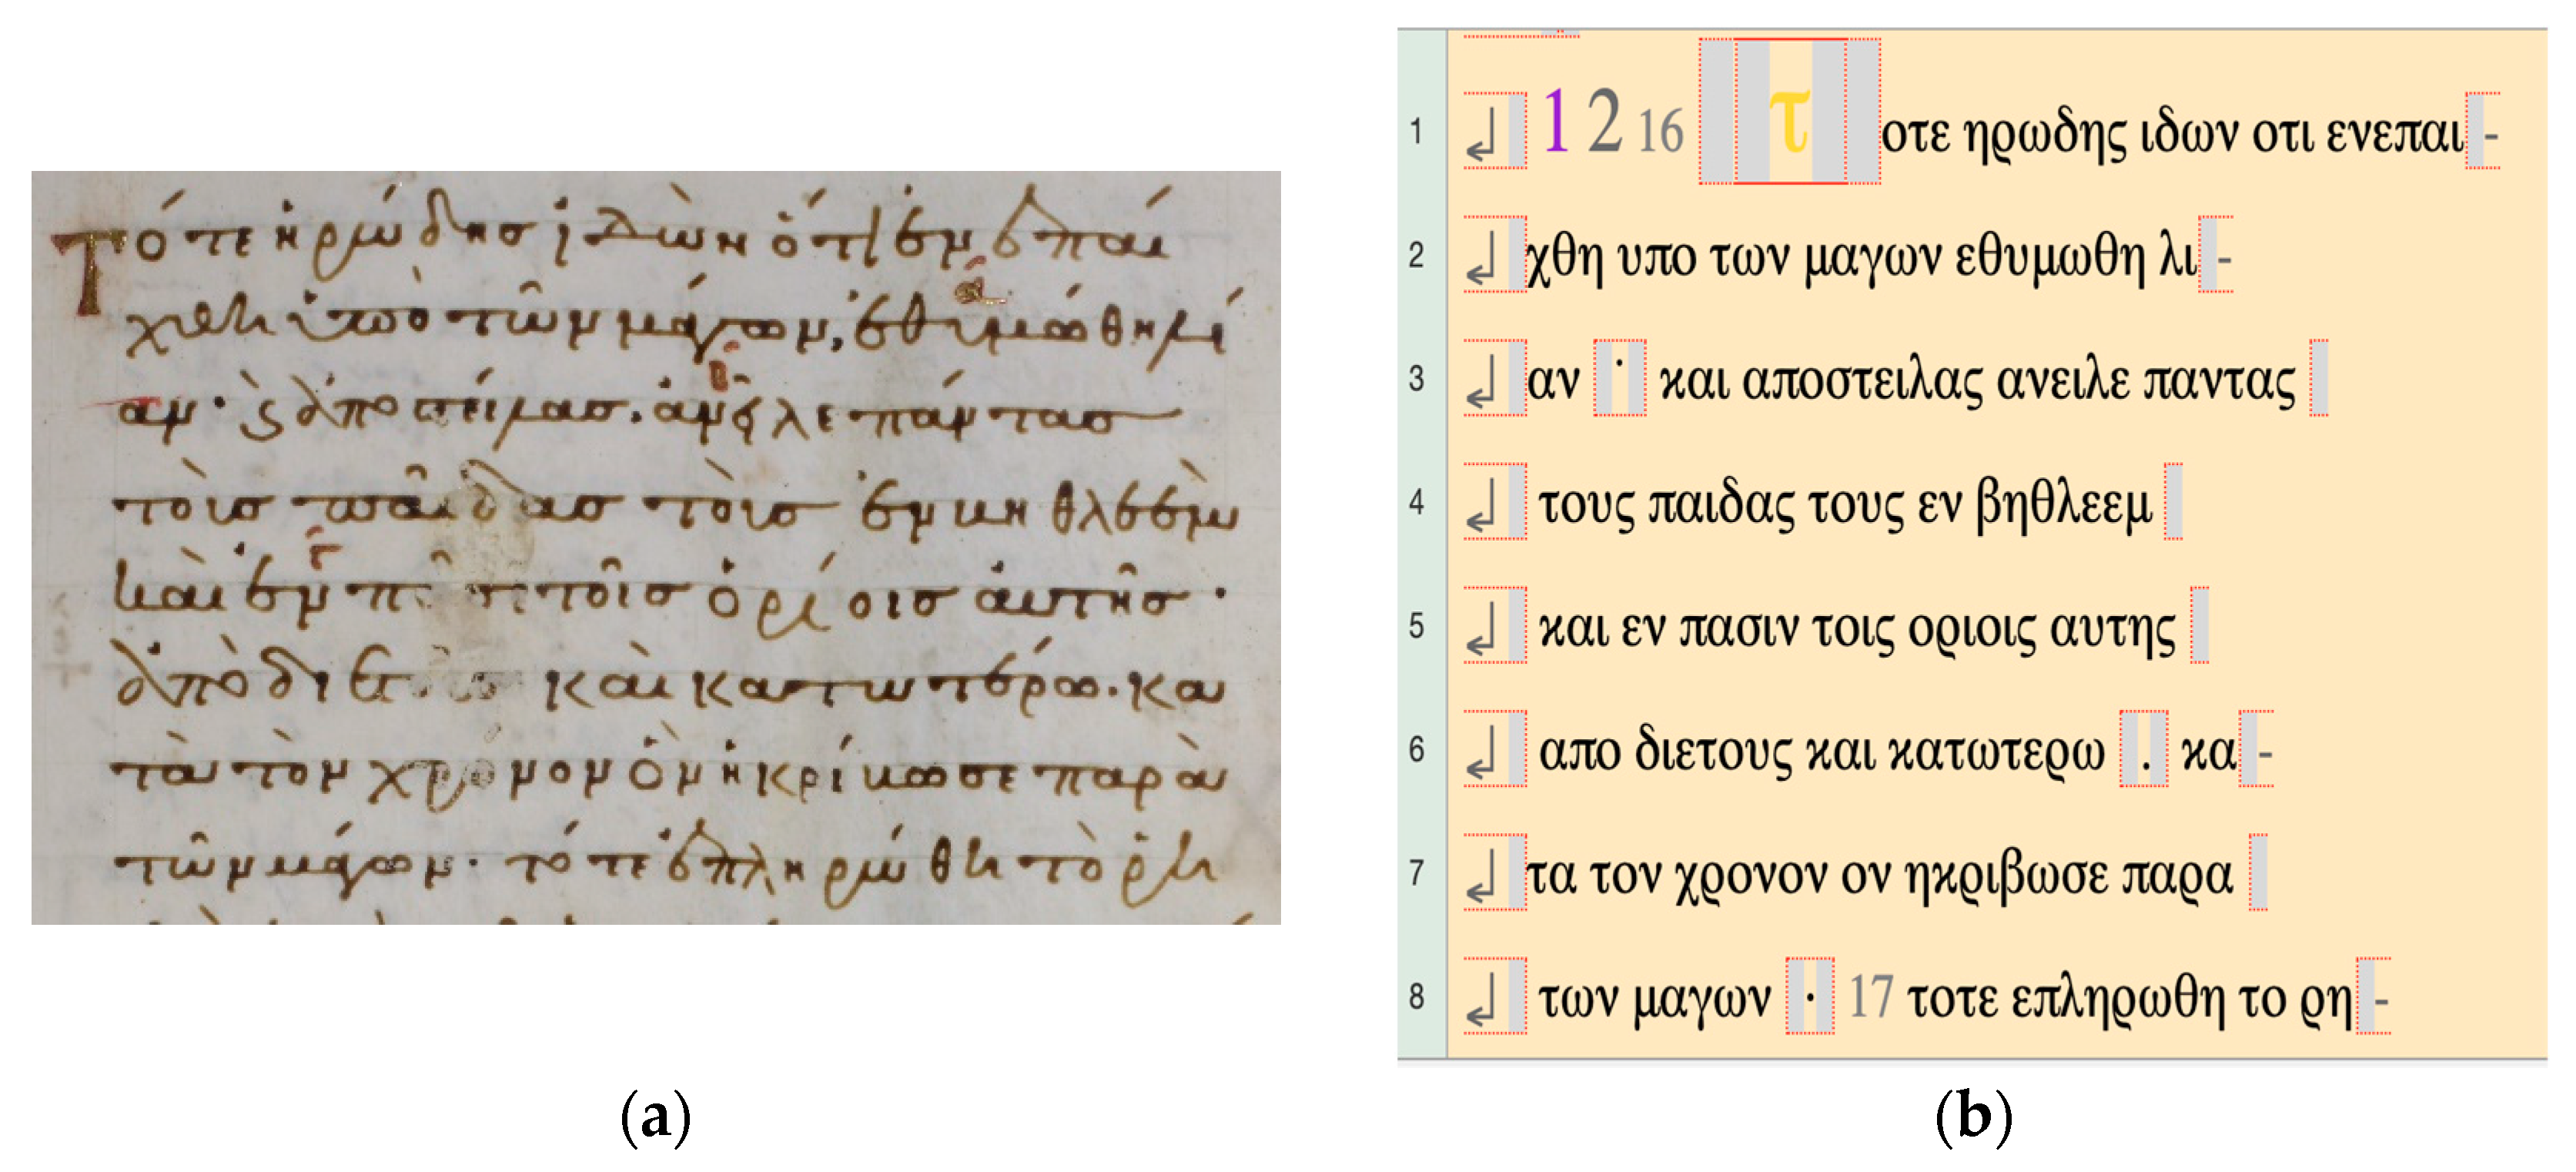 Τότε ἡρώδης ἰδὼν ὅτι ἐνεπαί
χθη ὑπὸ τῶν μάγων, ἐθυμώθη λί
αν· ϗ ἀποστείλας. ἀνεῖλε πάντας
τοὺς παῖδας τοὺς ἐν βηθλεὲμ
καὶ ἐν τοῖς ὁρίοις αὐτῆς·
ἀπὸ καὶ κατωτέρω. κα
τὰ τὸν χρόνον ὃν ἠκρίβωσε παρὰ
τῶν μάγων· τότε ἐπληρώθη τὸ ῥη
(a)
1 1 2 16 τοτε ηρωδης ιδων οτι ενεπαι-
2 χθη υπο των μαγων εθυμωθη λι-
3 αν · και αποστειλας ανειλε παντας
4 τους παιδας τους εν βηθλεεμ
5 και εν πασιν τοις οριοις αυτης
6 απο διετους και κατωτερω . κα-
7 τα τον χρονον ον ηκριβωσε παρα
8 των μαγων · 17 τοτε επληρωθη το ρη-
(b)